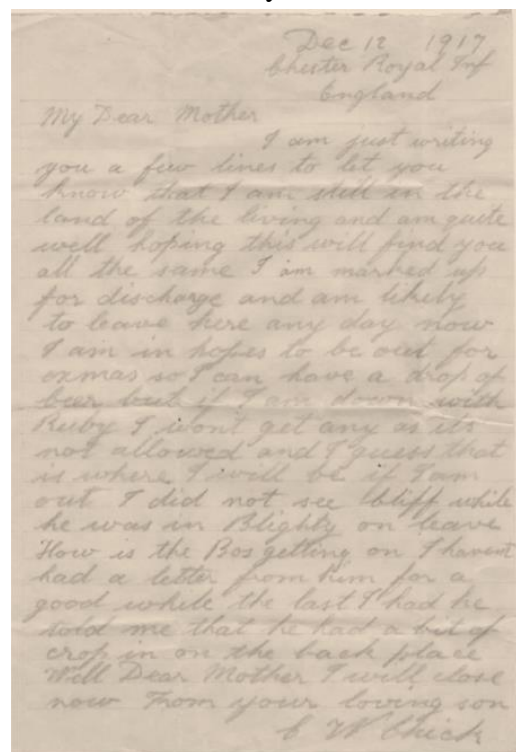 Dec 12 1917
Chester Royal Inf
England
My Dear Mother
I am just writing
you a few lines to let you
know that I am still in the
land of the living and am quite
well hoping this will find you
all the same I am marked up
for discharge and am likely
to leave here any day now
I am in hopes to be out for
oxmas so I can have a drop of
beer but if I am down with
Ruby I wont get any as its
not allowed and I guess that
is where I will be if I am
out I did not see Cliff while
he was in Blighty on leave
How is the Bos getting on I havent
had a letter from him for a
good while the last I had he
told me that he had a bit of
crop in on the back place
Well Dear Mother I will close
now From your loving son
C W Chick